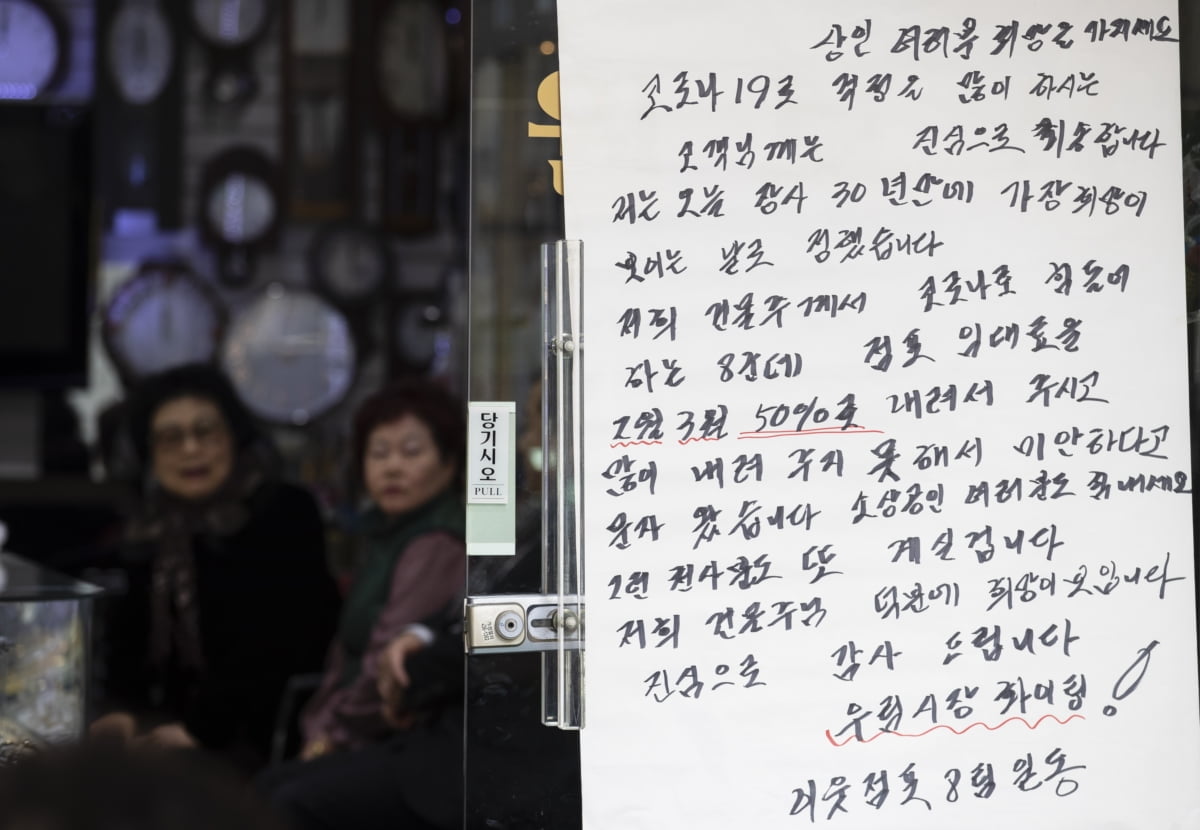 상인 여러분 희망을 가지세요
코로나19로 걱정을 많이 하시는
고객님께는 진심으로 죄송합니다
저는 오늘 장사 30년만에 가장 희망이
날로 정했습니다
저희 건물주께서 코로나로 힘들어
하는 8간데 점포 임대료를
2월 3월 50%로 내려서 주시고
많이 내려 주지 못해서 미안하다고
문자 왔습니다 소상공인 여러분도 힘내세요
그런 천사분도 또 계실겁니다
저희 건물주님 덕분에 희망이 보입니다
진심으로 감사 드립니다
우림시장 화이팅!
이웃점포 8팀 일동
당기시오
PULL